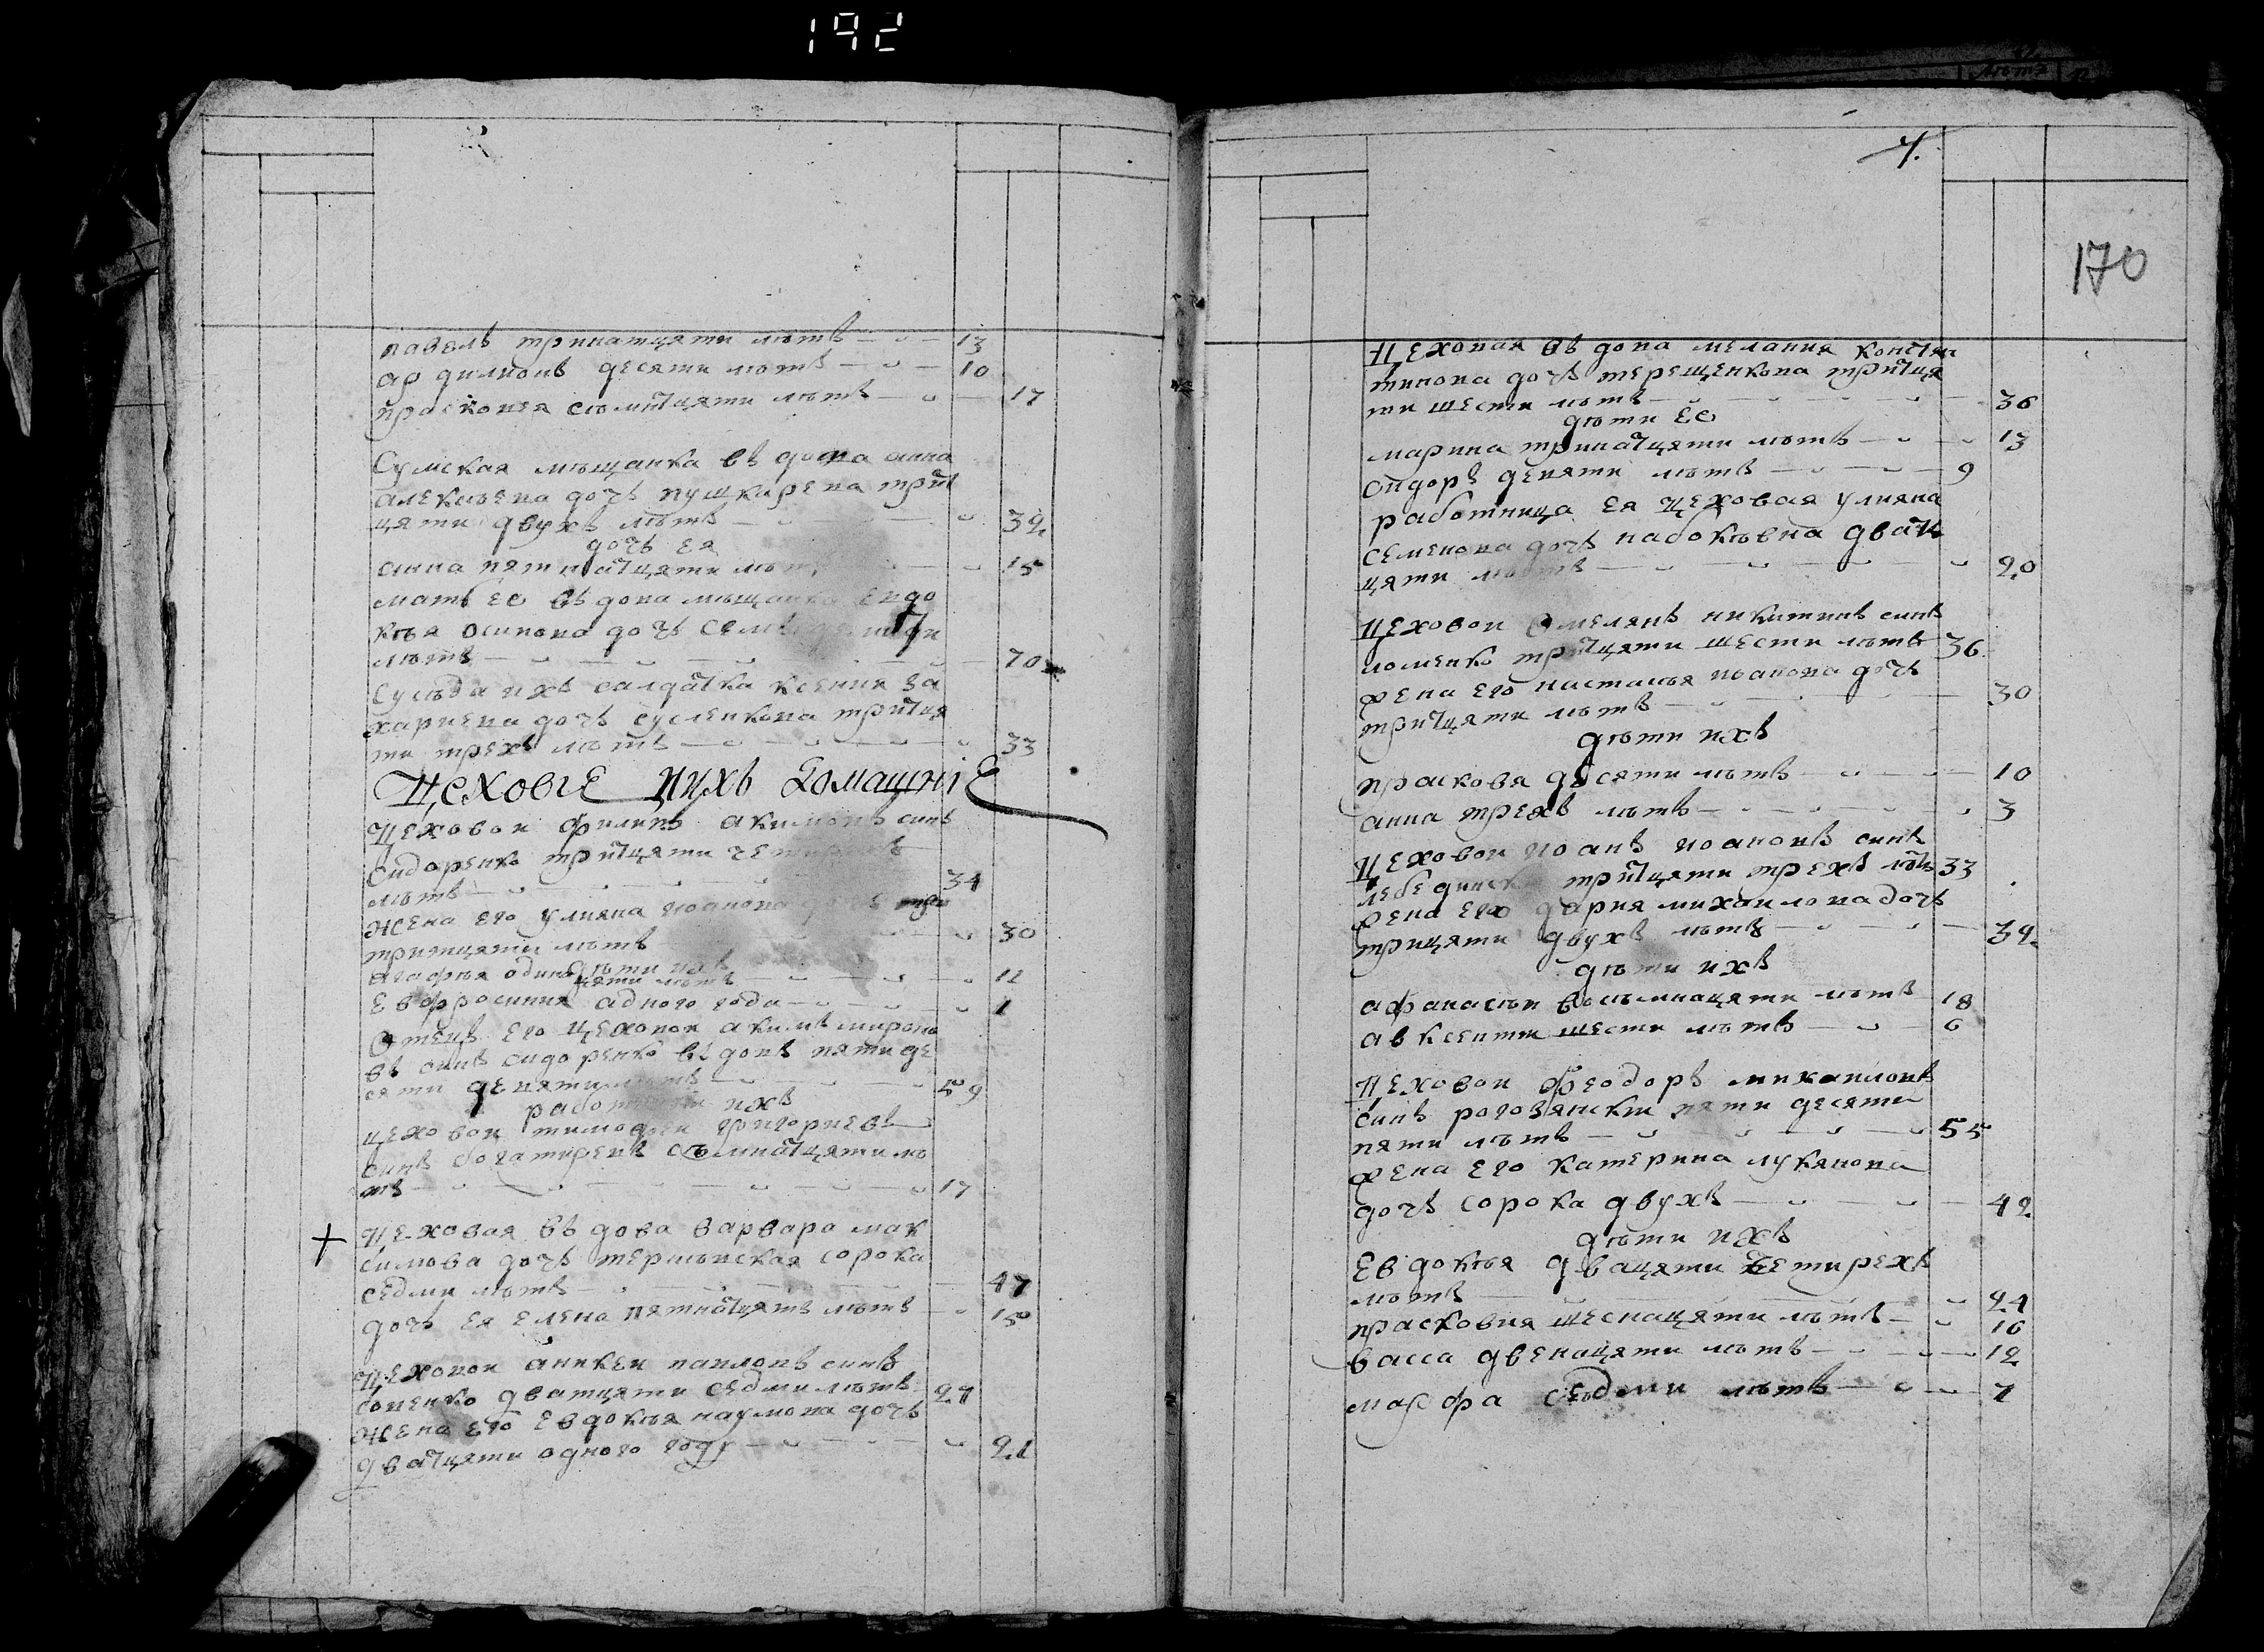 192
павелъ тринатцяти лѣтъ 13
ардилионъ десяти лѣтъ 10
прасковея сѣмнатцяти лѣтъ 17
Сумская мѣщанка въдова анна
алексѣева дочъ пушкарева трит
цяти двухъ лѣтъ 32
дочъ ея
анна пятнатцяти лѣтъ 15
мать ео въдова мѣщанка Евдо
кѣя осипова дочъ семъдесятъ
лѣтъ 70
Сусѣда ихъ салдатка ксения за
хариева дочъ сусленкова тритця
ти трехъ лѣтъ 33
Цеховые ихъ Домашніе
Цеховои филипъ акимовъ синъ
Сидоренко тритцяти четирехъ
лѣтъ 34
Жена его уляна иоанова дочъ
тритцяти лѣтъ 30
дѣти ихъ
агафѣя одинатцяти лѣтъ 11
Евфросиния адного года 1
Отецъ его цеховои акимъ мироно
въ синъ сидоренко въдовъ пятиде
сяти девяти лѣтъ 59
работники ихъ
цеховои тимофеи григориевъ
синъ богатиревъ сѣмнатцяти лѣ
тъ 17
+ Цеховая въдова варвара мак
симова дочъ сорока
седми лѣтъ 47
дочъ ея елена пятнатцять лѣтъ 15
Цеховои аникеи павловъ синъ
дватцяти седми лѣтъ 27
Жена его евдокѣя наумова дочъ
дватцяти одного году 21
4.
170
Цеховая въдова мелания констян
тинова дочъ терещенкова тритця
ти шести лѣтъ 36
дѣти ео
марина тринатцяти лѣтъ 13
сидоръ девяти лѣтъ 9
работница ея цеховая уляна
семенова дочъ набокѣвна дват
цяти лѣтъ 20
Цеховои омелянъ никитинъ синъ
ломенко тритцяти шести лѣтъ 36
жена его насталѣя иоанова дочъ
тритцяти лѣтъ 30
дѣти ихъ
прасковя десяти лѣтъ 10
анна трехъ лѣтъ 3
Цеховои иоанъ иоановъ синъ
лебединскы тритцяти трехъ лѣтъ 33
жена его дария михаилова дочъ
трицяти двухъ лѣтъ 32
дѣти ихъ
афанасѣи восѣмнацяти лѣтъ 18
авксенти шести лѣтъ 6
Цеховои феодоръ михаиловъ
синъ роговянски пяти десяти
пяти лѣтъ 55
жена его катерина лукянова
дочъ сорока двухъ 42
дѣти ихъ
Евдокѣя двацяти четирехъ
лѣтъ 24
прасковия шеснацяти лѣтъ 16
васса двенацяти лѣтъ 12
марфа седми лѣтъ 7